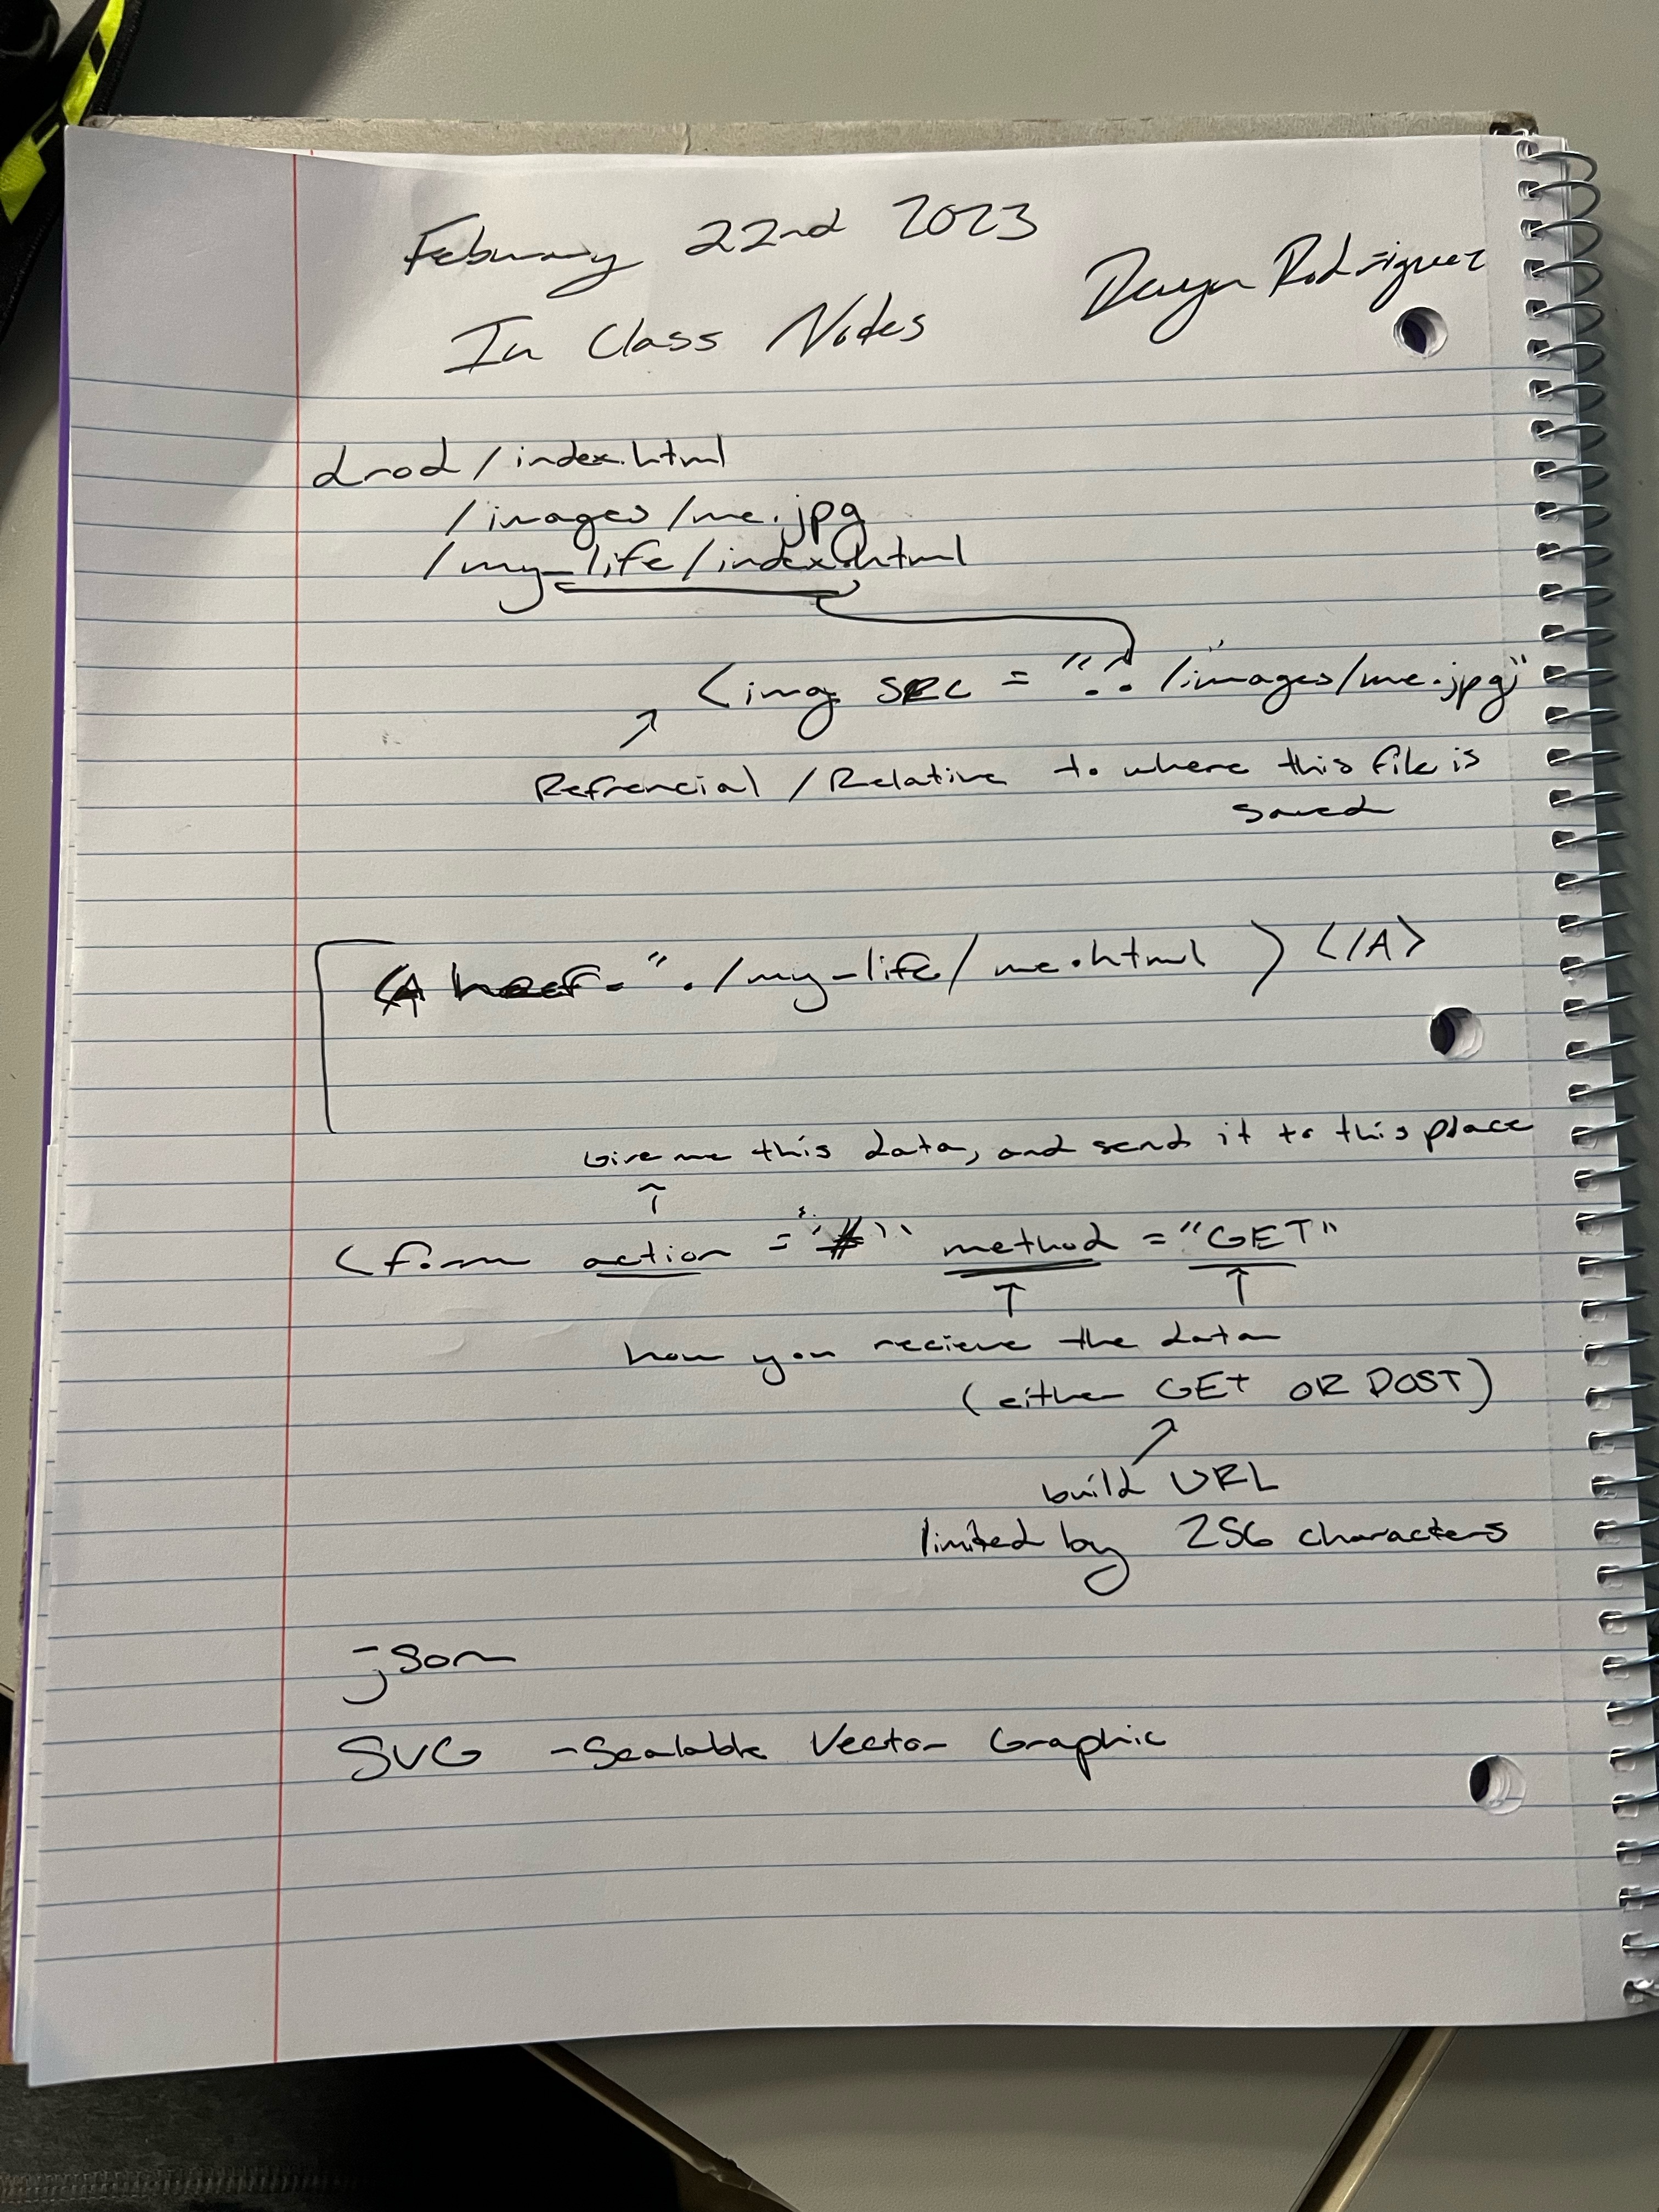 February 22nd 2023
In Class Notes
Rodriguez
drod/index.html
/images/me.jpg
/my_life/index.html
<img SRC = ". . /images/me.jpg"
Refrencial / Relative to where this file is
saved
<A href= "./my_life/me.html > </A>
Give me this data, and send it to this place
<form action = "#" method = "GET"
how you recieve the data
(either GET OR POST)
build URL
limited by 256 characters
json
SVG - Scalable Vector Graphic